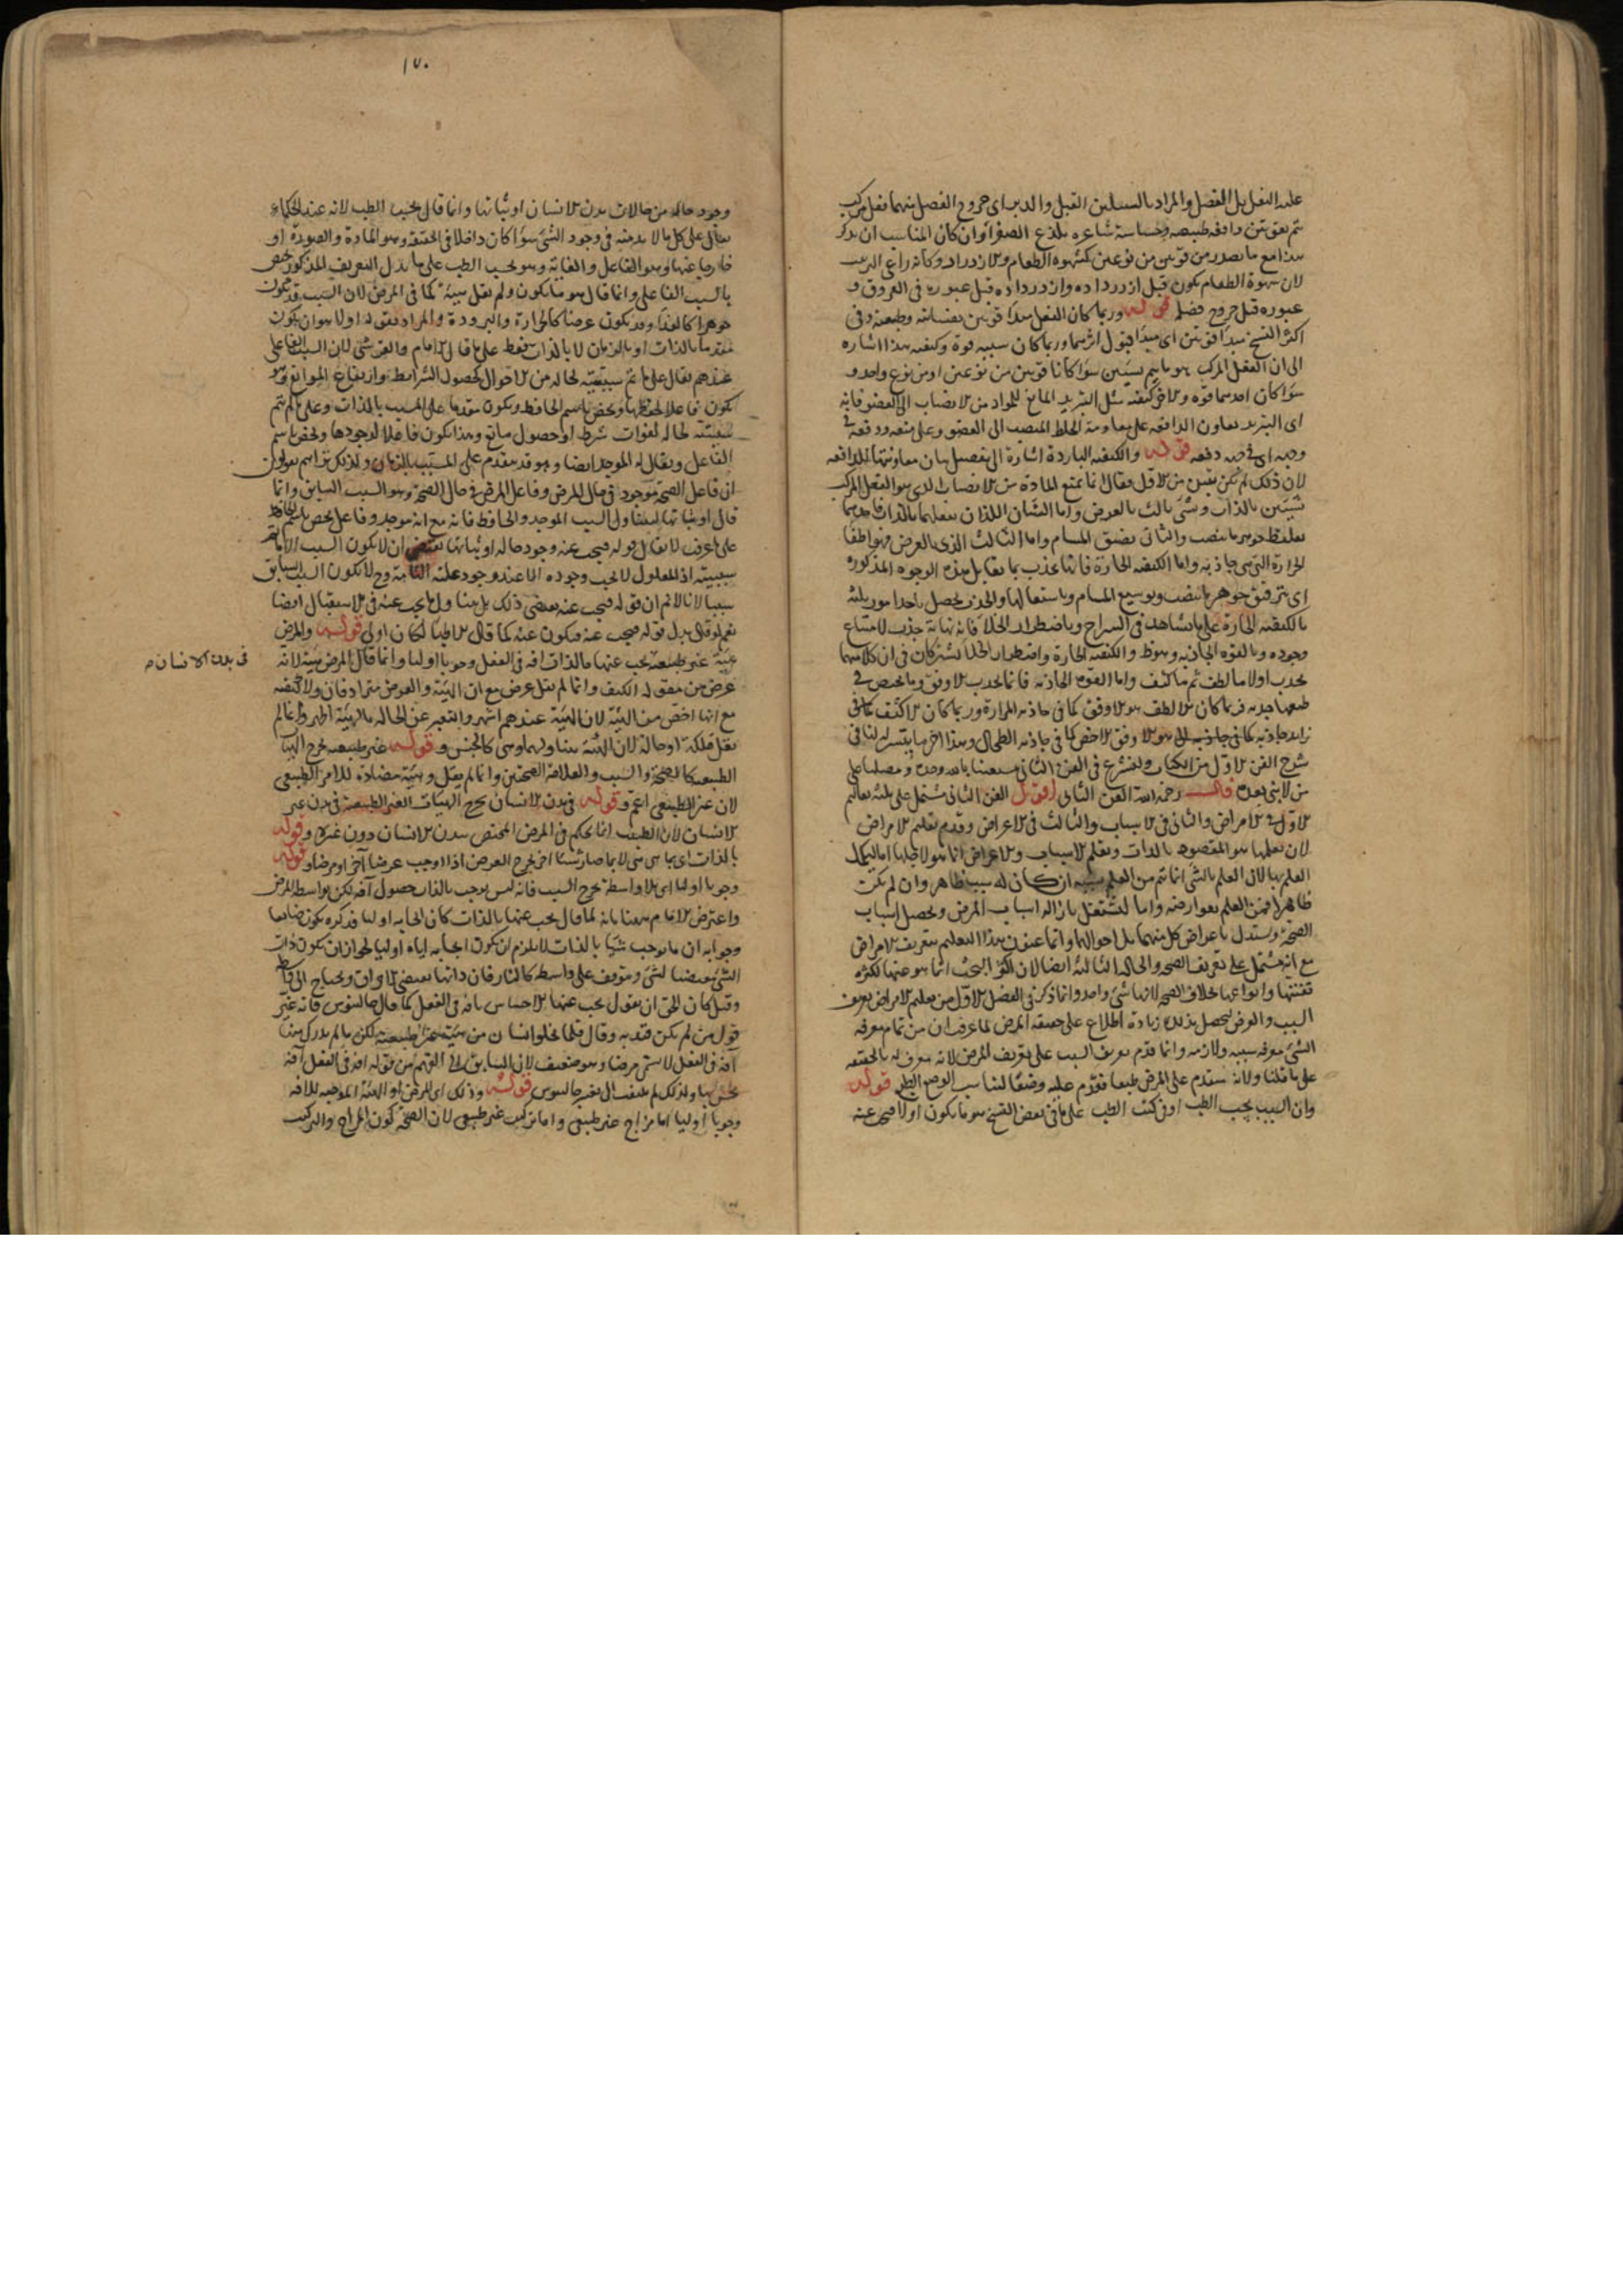 عليه الثفل بل الفضل والمراد بالسبيلين القبل والدبر اى خروج الفضل منهما فعل مركب
يتم بقوتين دافعة طبيعية وحساسة شاعرة بلذع الصفراء وان كان المناسب ان يذكر
هذا مع ما يصدر من قوتين من نوعين كشهوة الطعام والازدراد وكأنه راعى الترتيب
لان شهوة الطعام يكون قبل ازدراده وازدراده قبل عبوره فى العروق و
عبوره قبل خروج فضله قوله وربما كان الفعل مبدأ قوتين نفسانية وطبيعية وفى
اكثر النسخ مبدأ قوتين اى مبدأ قبول اثرهما وربما كان سببه قوة وكيفية هذا اشارة
الى ان الفعل المركب هو ما يتم بسببين سوأ كانا قوتين من نوعين او من نوع واحد و
سوأ كان احدهما قوة والاخر كيفية مثل التبريد المانع للمواد من الانصباب الى العضو فانه
اى التبريد يعاون الدافعة على مقاومة الخلط المنصب الى العضو وعلى منعه ودفعه فى
وجهه اى فى جهة دفعه قوله والكيفية الباردة اشارة الى تفصيل بيان معاونتها للدافعة
لان ذلك لم يكن يتبين من الاول فقال انما تمنع المادة من الانصباب الذى هو الفعل المركب
بشيئين بالذات وشئ ثالث بالعرض واما الشيئان اللذان يفعلهما بالذات فاحدهما
تغليظ جوهر ما ينصب والثانى تضييق المسام واما الثالث الذى بالعرض فهو اطفأ
الحرارة التى هى جاذبة واما الكيفية الحارة فانها تجذب بما يقابل هذه الوجوه المذكورة
اى بترقيق جوهر ما ينصب وبتوسيع المسام وباستعمالها والجذب يحصل باحد امور ثلثة
بالكيفية الحارة على ما يشاهد فى السراج وباضطرار الخلأ فانه نهاية جذب لامتناع
وجوده وبالقوة الجاذبة وهو ظ والكيفية الحارة واضطرار الخلأ يشتركان فى ان كلا منهما
يجذب اولا ما لطف ثم ما كثف واما القوة الجاذبة فانما تجذب الاوفق وما يختص فى
طبعها جذبه فربما كان الالطف هو الاوفق كما فى جاذبة المرارة وربما كان الاكثف كما فى
شرح الفن الاول من الكتاب ولنشرع فى الفن الثانى مستعينا بالله وحده ومصليا على
من لا نبى بعده قال رحمه الله الفن الثانى اقول الفن الثانى مشتمل على ثلثة تعاليم
الاول فى الامراض والثانى فى الاسباب والثالث فى الاعراض وقدم تعليم الامراض
لان تعلمها هو المقصود بالذات وتعليم الاسباب والاعراض انما هو لاجلها اما ليكمل
العلم بها لان العلم بالشئ انما يتم من العلم بسببه ان كان له سبب ظاهر وان لم يكن
ظاهرا فمن العلم بعوارضه واما لنشتغل بازالة اسباب المرض وتحصيل اسباب
الصحة ونستدل باعراض كل منهما على احوالهما وانما عنون هذا التعليم بتعريف الامراض
مع انه مشتمل على تعريف الصحة والحالة الثالثة ايضا لان اكثر البحث انما هو عنها لكثرة
تفننها وانواعها بخلاف الصحة لانها شئ واحد وانما ذكر فى الفصل الاول من تعليم الامراض تعريف
السبب والعرض ليحصل بذلك زيادة اطلاع على حقيقة المرض لما عرفت ان من تمام معرفة
الشئ معرفة سببه ولازمه وانما قدم تعريف السبب على تعريف المرض لانه معرف له بالحقيقة
على ما قلنا ولانه متقدم على المرض طبعا فقدم عليه وضعا ليناسب الوضع الطبع قوله
وان السبب بحسب الطب او فى كتب الطب على ما فى بعض النسخ هو ما يكون اولا فيجب عنه
١٧٠
وجود حالة من حالات بدن الانسان او ثباتها وانما قال بحسب الطب لانه عند الحكماء
يقال على كل ما لا بد منه فى وجود الشئ سوأ كان داخلا فى الحقيقة وهو المادة والصورة او
خارجا عنها وهو الفاعل والغاية وهو بحسب الطب على ما يدل التعريف المذكور يختص
بالسبب الفاعلى وانما قال هو ما يكون ولم يقل هيئة كما فى المرض لان السبب قد يكون
جوهرا كالغذاء وقد يكون عرضا كالحرارة والبرودة والمراد بقوله اولا هو ان يكون
متقدما بالذات او بالزمان لا بالذات فقط على ما قال الامام والقرشى لان السبب الفاعلى
عندهم يقال على ما تتم سببيته لحالة من الاحوال بحصول الشرايط وارتفاع الموانع وقد
يكون فاعلا لحفظها ويختص باسم الحافظ ويكون متقدما على المسبب بالذات وعلى ما لم تتم
سببيته لحالة لفوات شرط او حصول مانع وهذا يكون فاعلا لوجودها ويختص باسم
الفاعل ويقال له الموجد ايضا وهو قد يتقدم على المسبب بالزمان ولذلك تراهم يقولون
ان فاعل الصحة موجود فى حال المرض وفاعل المرض فى حال الصحة وهو السبب السابق وانما
قال او ثباتها ليتناول السبب الموجد والحافظ فانه مع انه موجد وفاعل يختص باسم الحافظ
على ما عرفت لا يقال قوله فيجب عنه وجود حالة او ثباتها يقتضى ان لا يكون السبب الا تام
سببيته اذ المعلول لا يجب وجوده الا عند وجود علته التامة وح لا يكون السبب السابق
سببا لانا لا نم ان قوله فيجب عنه يقتضى ذلك بل يتناول ما يجب عنه فى الاستقبال ايضا
نعم لو قال بدل قوله فيجب عنه فيكون عنه كما قال الاطبا لكان اولى قوله والمرض
هيئة غير طبيعية يجب عنها بالذات افة فى الفعل وجوبا اوليا وانما قال المرض هيئة لانه
فى بدن الانسان
عرض من مقولة الكيف وانما لم يقل عرض مع ان الهيئة والعرض مترادفان ولا كيفية
مع انها اخص من الهيئة لان الهيئة عندهم اشهر والتعبير عن الحالة بالهيئة اظهر وانما لم
يقل ملكة او حالة لان الهيئة يتناولهما وهى كالجنس و قوله غير طبيعية يخرج الهيأت
الطبيعية كالصحة والسبب والعلامة الصحيتين وانما لم يقل وهيئة مضادة للامر الطبيعى
لان غير الطبيعى اعم و قوله فى بدن الانسان يخرج الهيئات الغير الطبيعية فى بدن غير
الانسان لان الطبيب انما يحكم فى المرض المختص ببدن الانسان دون غيره و قوله
بالذات اى بما هى هى لا بما صار شيئا اخر يخرج العرض اذا اوجب عرضا آخر او مرضا و قوله
وجوبا اوليا اى بلا واسطة يخرج السبب فانه ليس يوجب بالذات حصول آفة لكن بواسطة المرض
واعترض الامام ههنا بانه لما قال يجب عنها بالذات كان ايجابه اوليا فذكره يكون ضايعا
وجوابه ان ما يوجب شيئا بالذات لا يلزم ان يكون ايجابه اياه اوليا لجواز ان يكون ذات
الشئ مقتضيا لشئ ويتوقف على واسطة كالنار فان ذاتها يقتضى الاحراق ويحتاج الى واسطة
وقيل كان الحق ان يقول يجب عنها الاحساس بافة فى الفعل كما قال جالينوس فانه غير
قول من لم يكن قنديه وقال قلما يخلو انسان من هيئة غير طبيعية لكن ما لم يدرك منها
آفة فى الفعل لا يسمى مرضا وهو ضعيف لان السابق الى الفهم من قوله افة فى الفعل آفة
يحس بها ولذلك لم يلتفت الى تغيير جالينوس قوله وذلك اى المرض او الهيئة الموجبة للافة
وجوبا اوليا اما مزاج غير طبيعى واما تركيب غير طبيعى لان الصحة تكون المزاج والتركيب